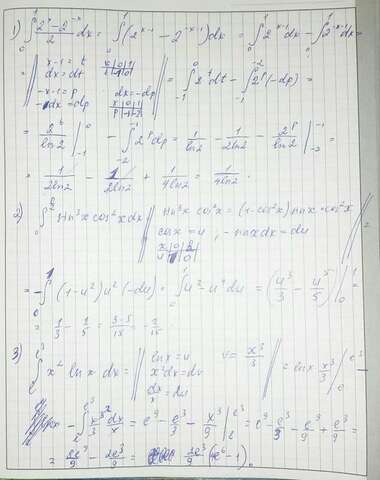 1) ∫₀¹ (2ˣ - 2⁻ˣ)/2 dx = ∫₀¹ (2ˣ⁻¹ - 2⁻ˣ⁻¹) dx = ∫₀¹ 2ˣ⁻¹ dx - ∫₀¹ 2⁻ˣ⁻¹ dx =
= || x-1=t x|0|1
dx=dt t|-1|0
-x-1=p dx=-dp
-dx=dp x|0|1 p|-1|-2 || = ∫₋₁⁰ 2ᵗ dt - ∫₋₁⁻² 2ᵖ (-dp) =
= 2ᵗ/ln2 |₋₁⁰ - ∫₋₂⁻¹ 2ᵖ dp = 1/ln2 - 1/2ln2 - 2ᵖ/ln2 |₋₂⁻¹ =
= 1/2ln2 - 1/2ln2 + 1/4ln2 = 1/4ln2.
2) ∫₀ sin³x cos²x dx || sin³x cos²x = (1-cos²x) sinx · cos²x
cosx = u ; -sinx dx = du
x|0| u|1|0 || =
= -∫₁⁰ (1-u²) u² (-du) = ∫ u² - u⁴ du = (u³/3 - u⁵/5) |₀¹ =
= 1/3 - 1/5 = 3-5/15 = -2/15
3) ∫ₑ^e³ x² ln x dx = || lnx = u v = x³/3
x²dx = dv
dx/x = du || = lnx x³/3 |ₑ^e³ -
- ∫ₑ^e³ x³/3 dx/x = e⁹ - e³/3 - x³/9 |ₑ^e³ = e⁹ - e³/3 - e⁹/9 + e³/9 =
= 2e⁹/9 - 2e³/9 = 2e³/9 (e⁶ - 1).